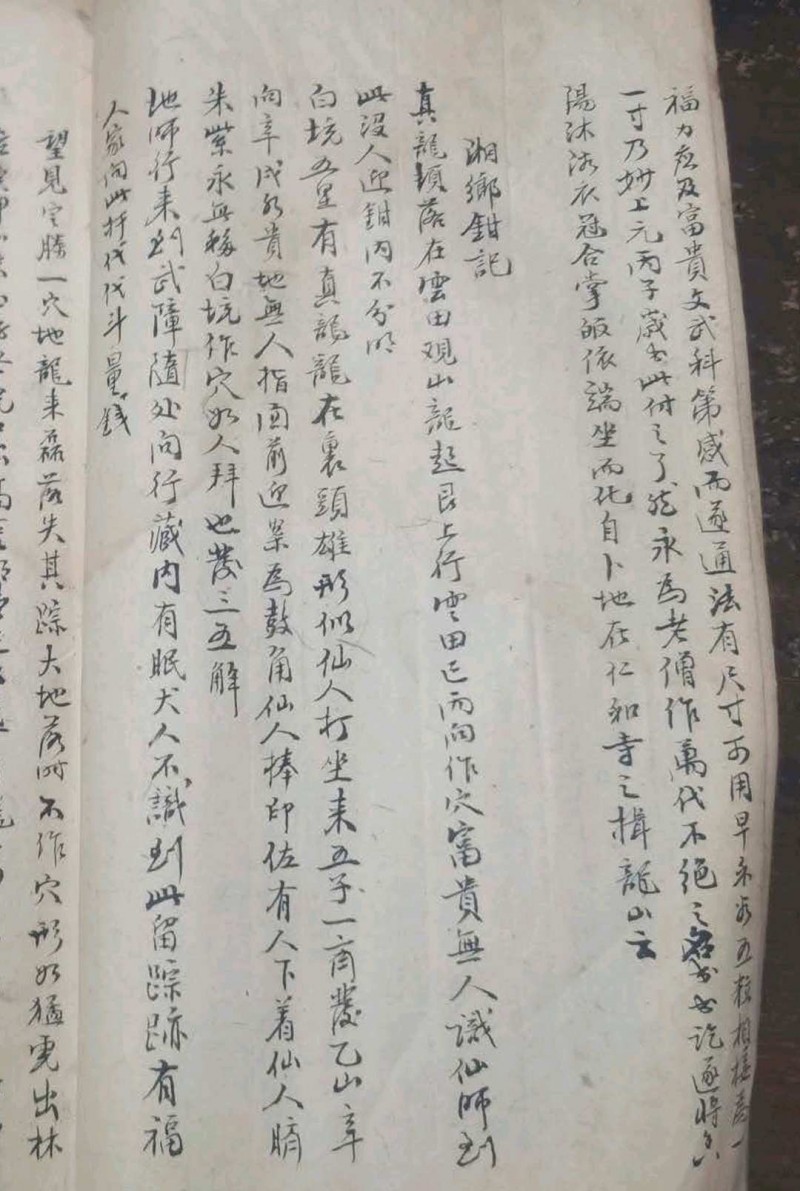 福力应及富貴文武科第感而遂通法有尺寸可用早禾米五粒相接為一
一寸乃妙上元丙子歲書此付之了然永為老僧作萬代不絕之名書訖遂將
陽沐浴衣冠合掌皈依端坐而化自卜地在仁和寺之楫龍山云
湘鄉鉗記
真龍頓落在雲田观山龍起艮上行雲田已而向作穴富貴無人識仙師到
此没人迎鉗内不分明
白坑五里有真龍龍在裏頭雄形似仙人打坐来五子一齊發乙山辛
向辛戌水貴地無人指面前迎案為鼓角仙人捧印佐有人下着仙人臍
朱紫永無移白坑作穴如人拜也發三五解
地师行来到武障隨处向行藏内有眠犬人不識到此留踪跡有福
人家向此扦代代斗量錢
望見空勝一穴地龍来磊落失其踪大地落时不作穴形如猛虎出林